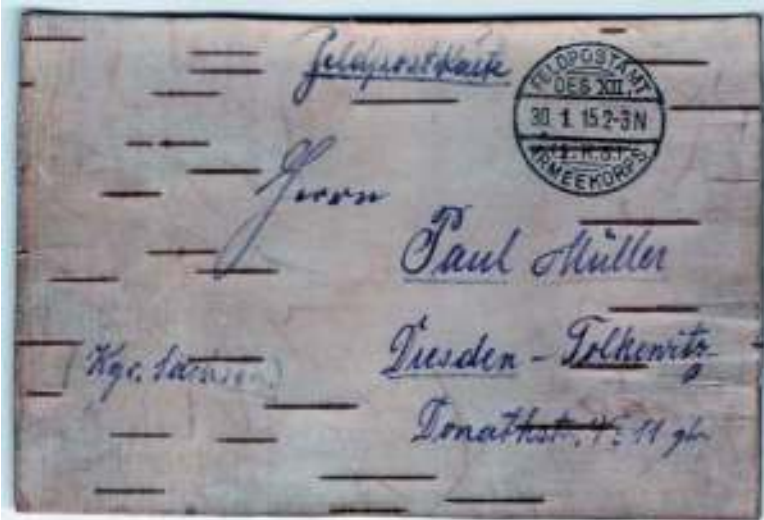 Feldpostkarte
FELDPOSTAMT
DES XII.
30 1 15 2-3N
ARMEEKORPS
Herrn
Paul Müller
Dresden - Tolkewitz
(Kgr. Sachsen)
Donathstr. 11